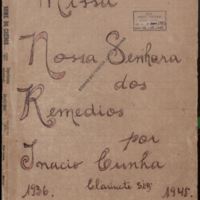 Missa
Nossa Senhora
dos
Remedios
por
Ignacio Cunha
1936. Clarinete Sib 1945.